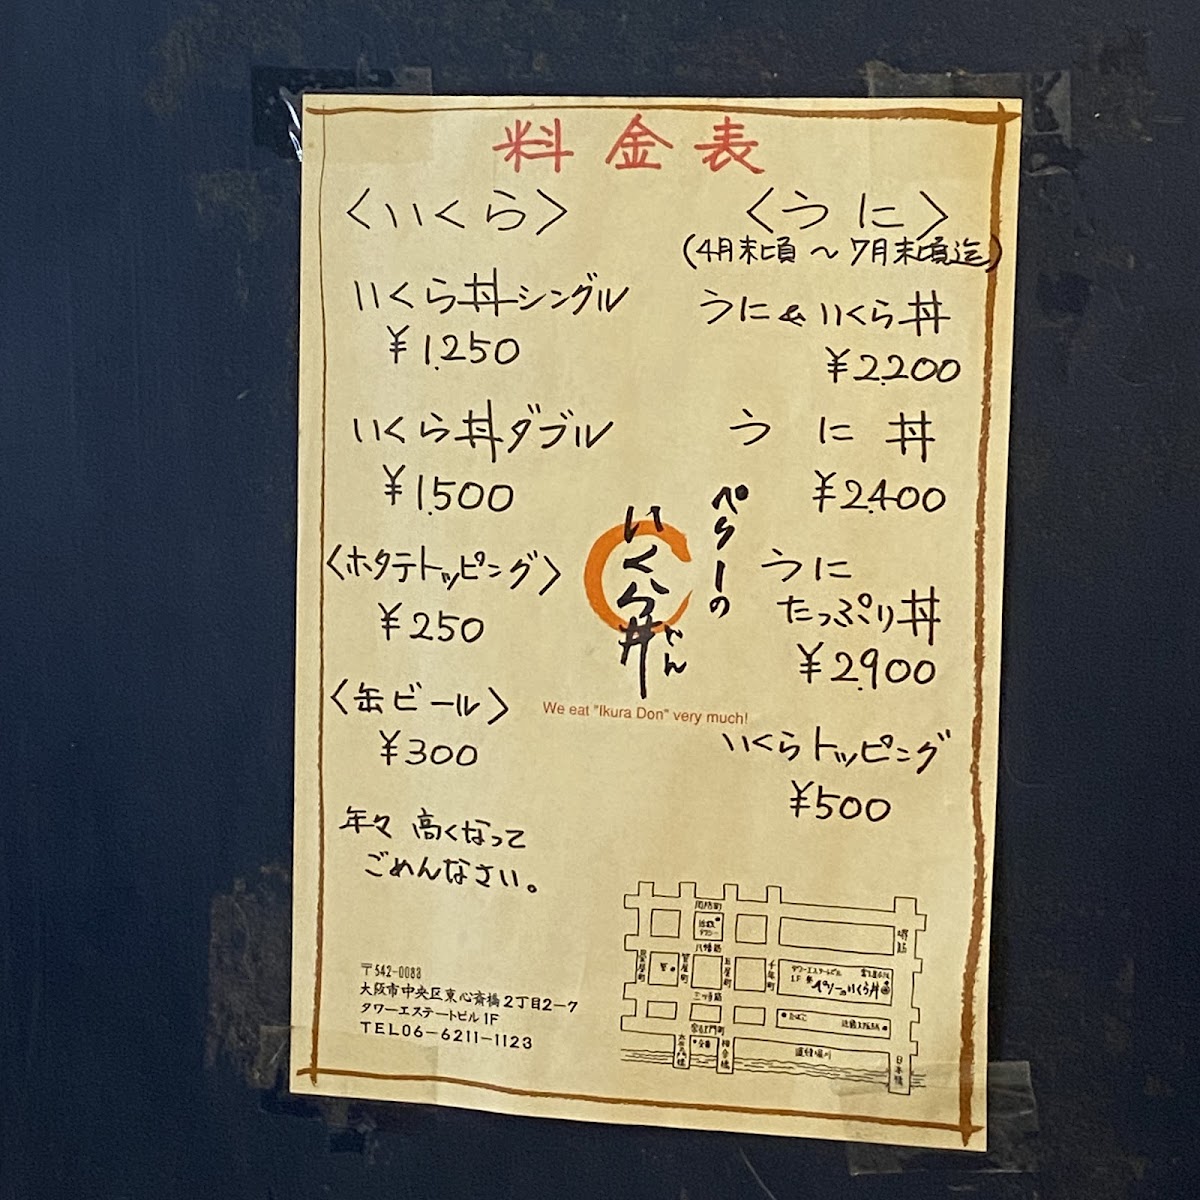 料金表
〈いくら〉
いくら丼シングル
¥1.250
いくら丼ダブル
¥1.500
〈ホタテトッピング〉
¥250
〈缶ビール〉
¥300
年々 高くなって
ごめんなさい。
〈うに〉
(4月末頃～7月末頃迄)
うに&いくら丼
¥2.200
うに丼
¥2.400
うに
たっぷり丼
¥2.900
いくらトッピング
¥500
ペリーの
いくら丼
どん
We eat "Ikura Don" very much!
〒542-0083
大阪市中央区東心斎橋2丁目2-7
タワーエステートビル1F
TEL06-6211-1123
周防町
八幡筋
三ッ寺筋
宗右衛門町
道頓堀川
堺筋
千年町
玉屋町
笠屋町
畳屋町
タワーエステートビル
1F
ペリーのいくら丼
たばこ
交番
相合橋
日本橋